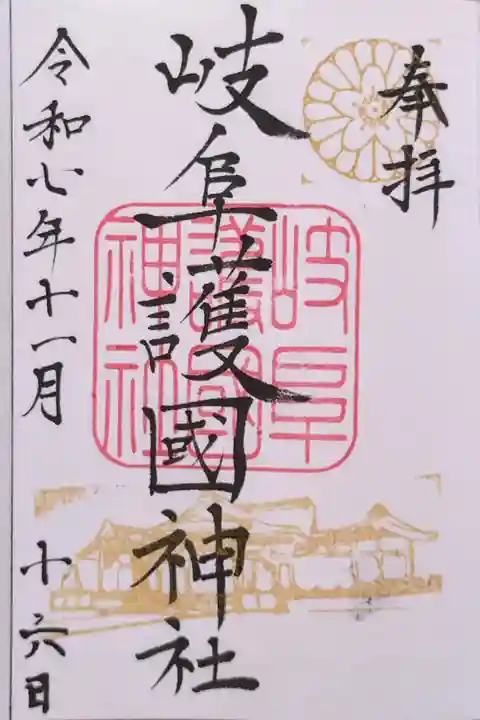 奉拝
岐阜護國神社
岐阜
護國
神社
令和年十一月
十六日